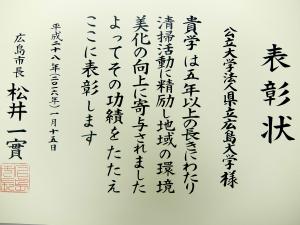 表彰状
公立大学法人県立広島大学様
貴学は五年以上の長きにわたり
清掃活動に精励し地域の環境
美化の向上に寄与されました
よってその功績をたたえ
ここに表彰します
平成二十八年(二〇一六年)一月十五日
広島市長 松井一實